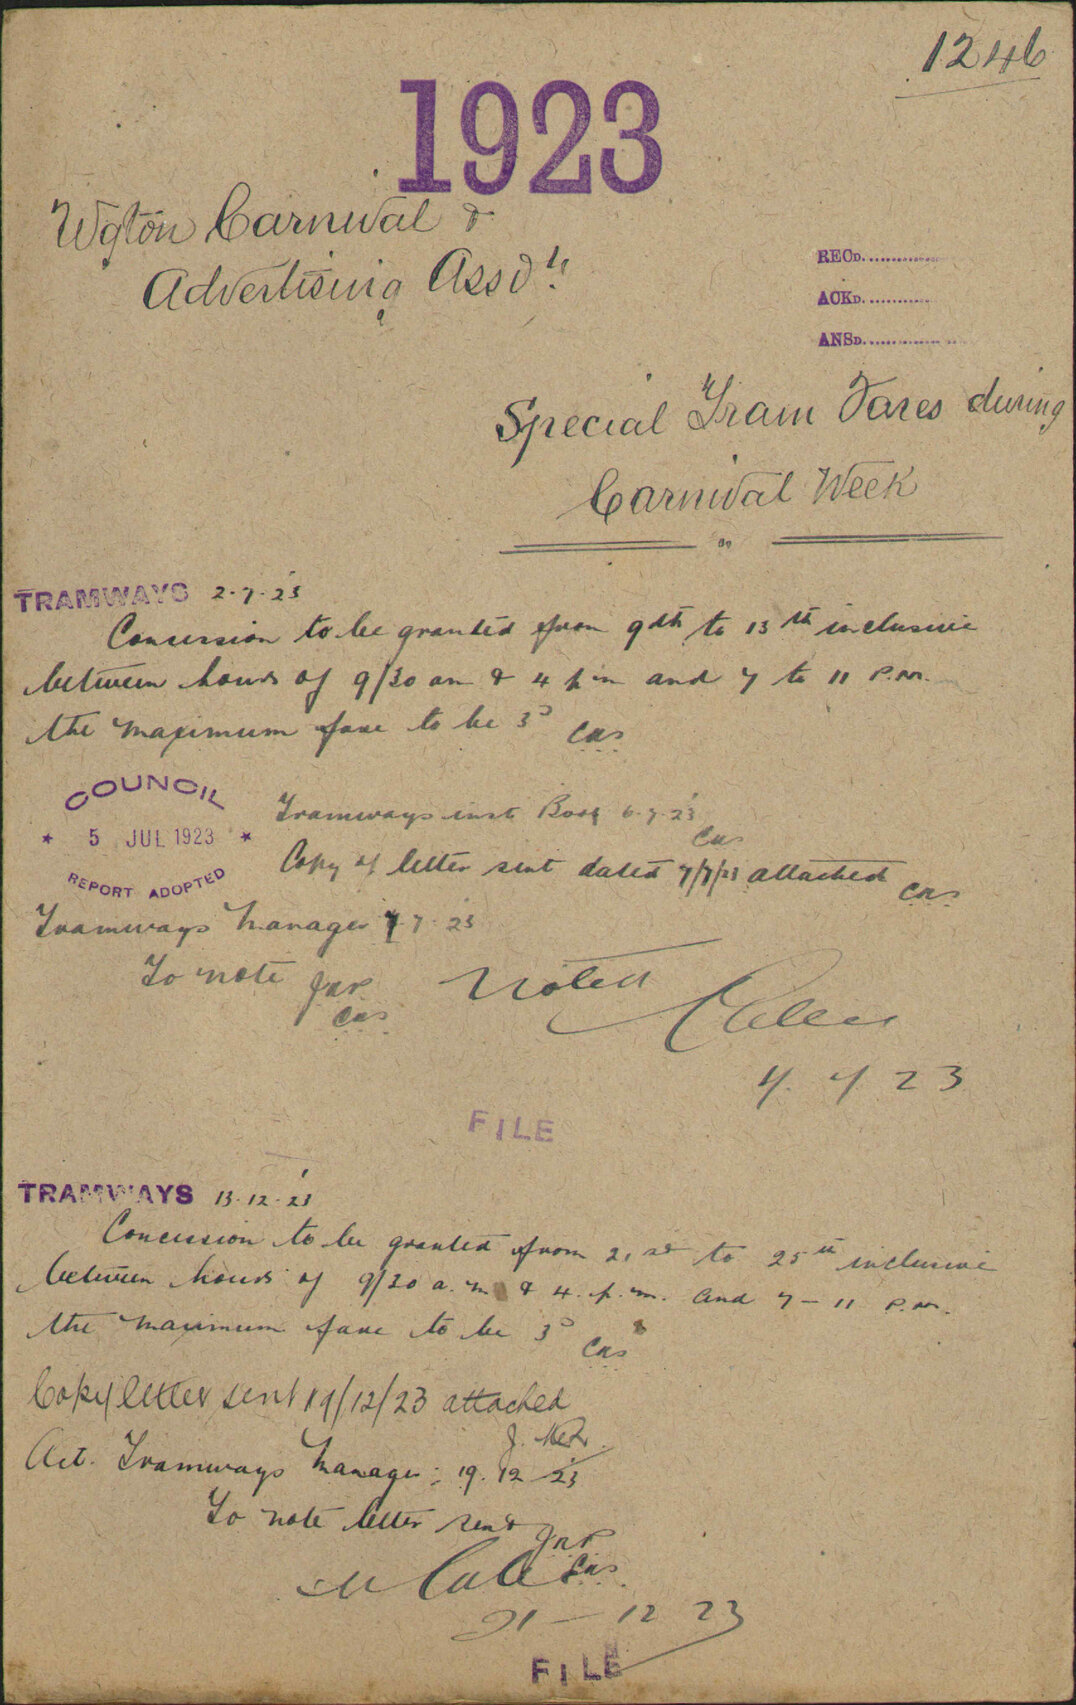 1246
1923
Wgton Carnival &
Advertising Assn.
RECD.
ACKD.
ANSD.
Special Tram Fares during
Carnival Week
TRAMWAYS 2.7.23
Concession to be granted from 9th to 13th inclusive
between hours of 9/30 am & 4 pm and 7 to 11 P.M.
the maximum fare to be 3D
Cas
COUNCIL
* 5 JUL 1923 *
REPORT ADOPTED
Tramways inst Book 6.7.23
Cas
Copy of letter sent dated 7/7/23 attached
Cas
Tramways Manager 7.7.23
To note
Cas
Noted
23
FILE
TRAMWAYS 13.12.23
Concession to be granted from 21st to 25th inclusive
between hours of 9/30 a.m & 4.p.m. and 7 - 11 P.M.
the maximum fare to be 3D
Cas
Copy letter sent 19/12/23 attached
Act. Tramways Manager: 19.12.23
To note letter sent
Cas
21 - 12 23
FILE